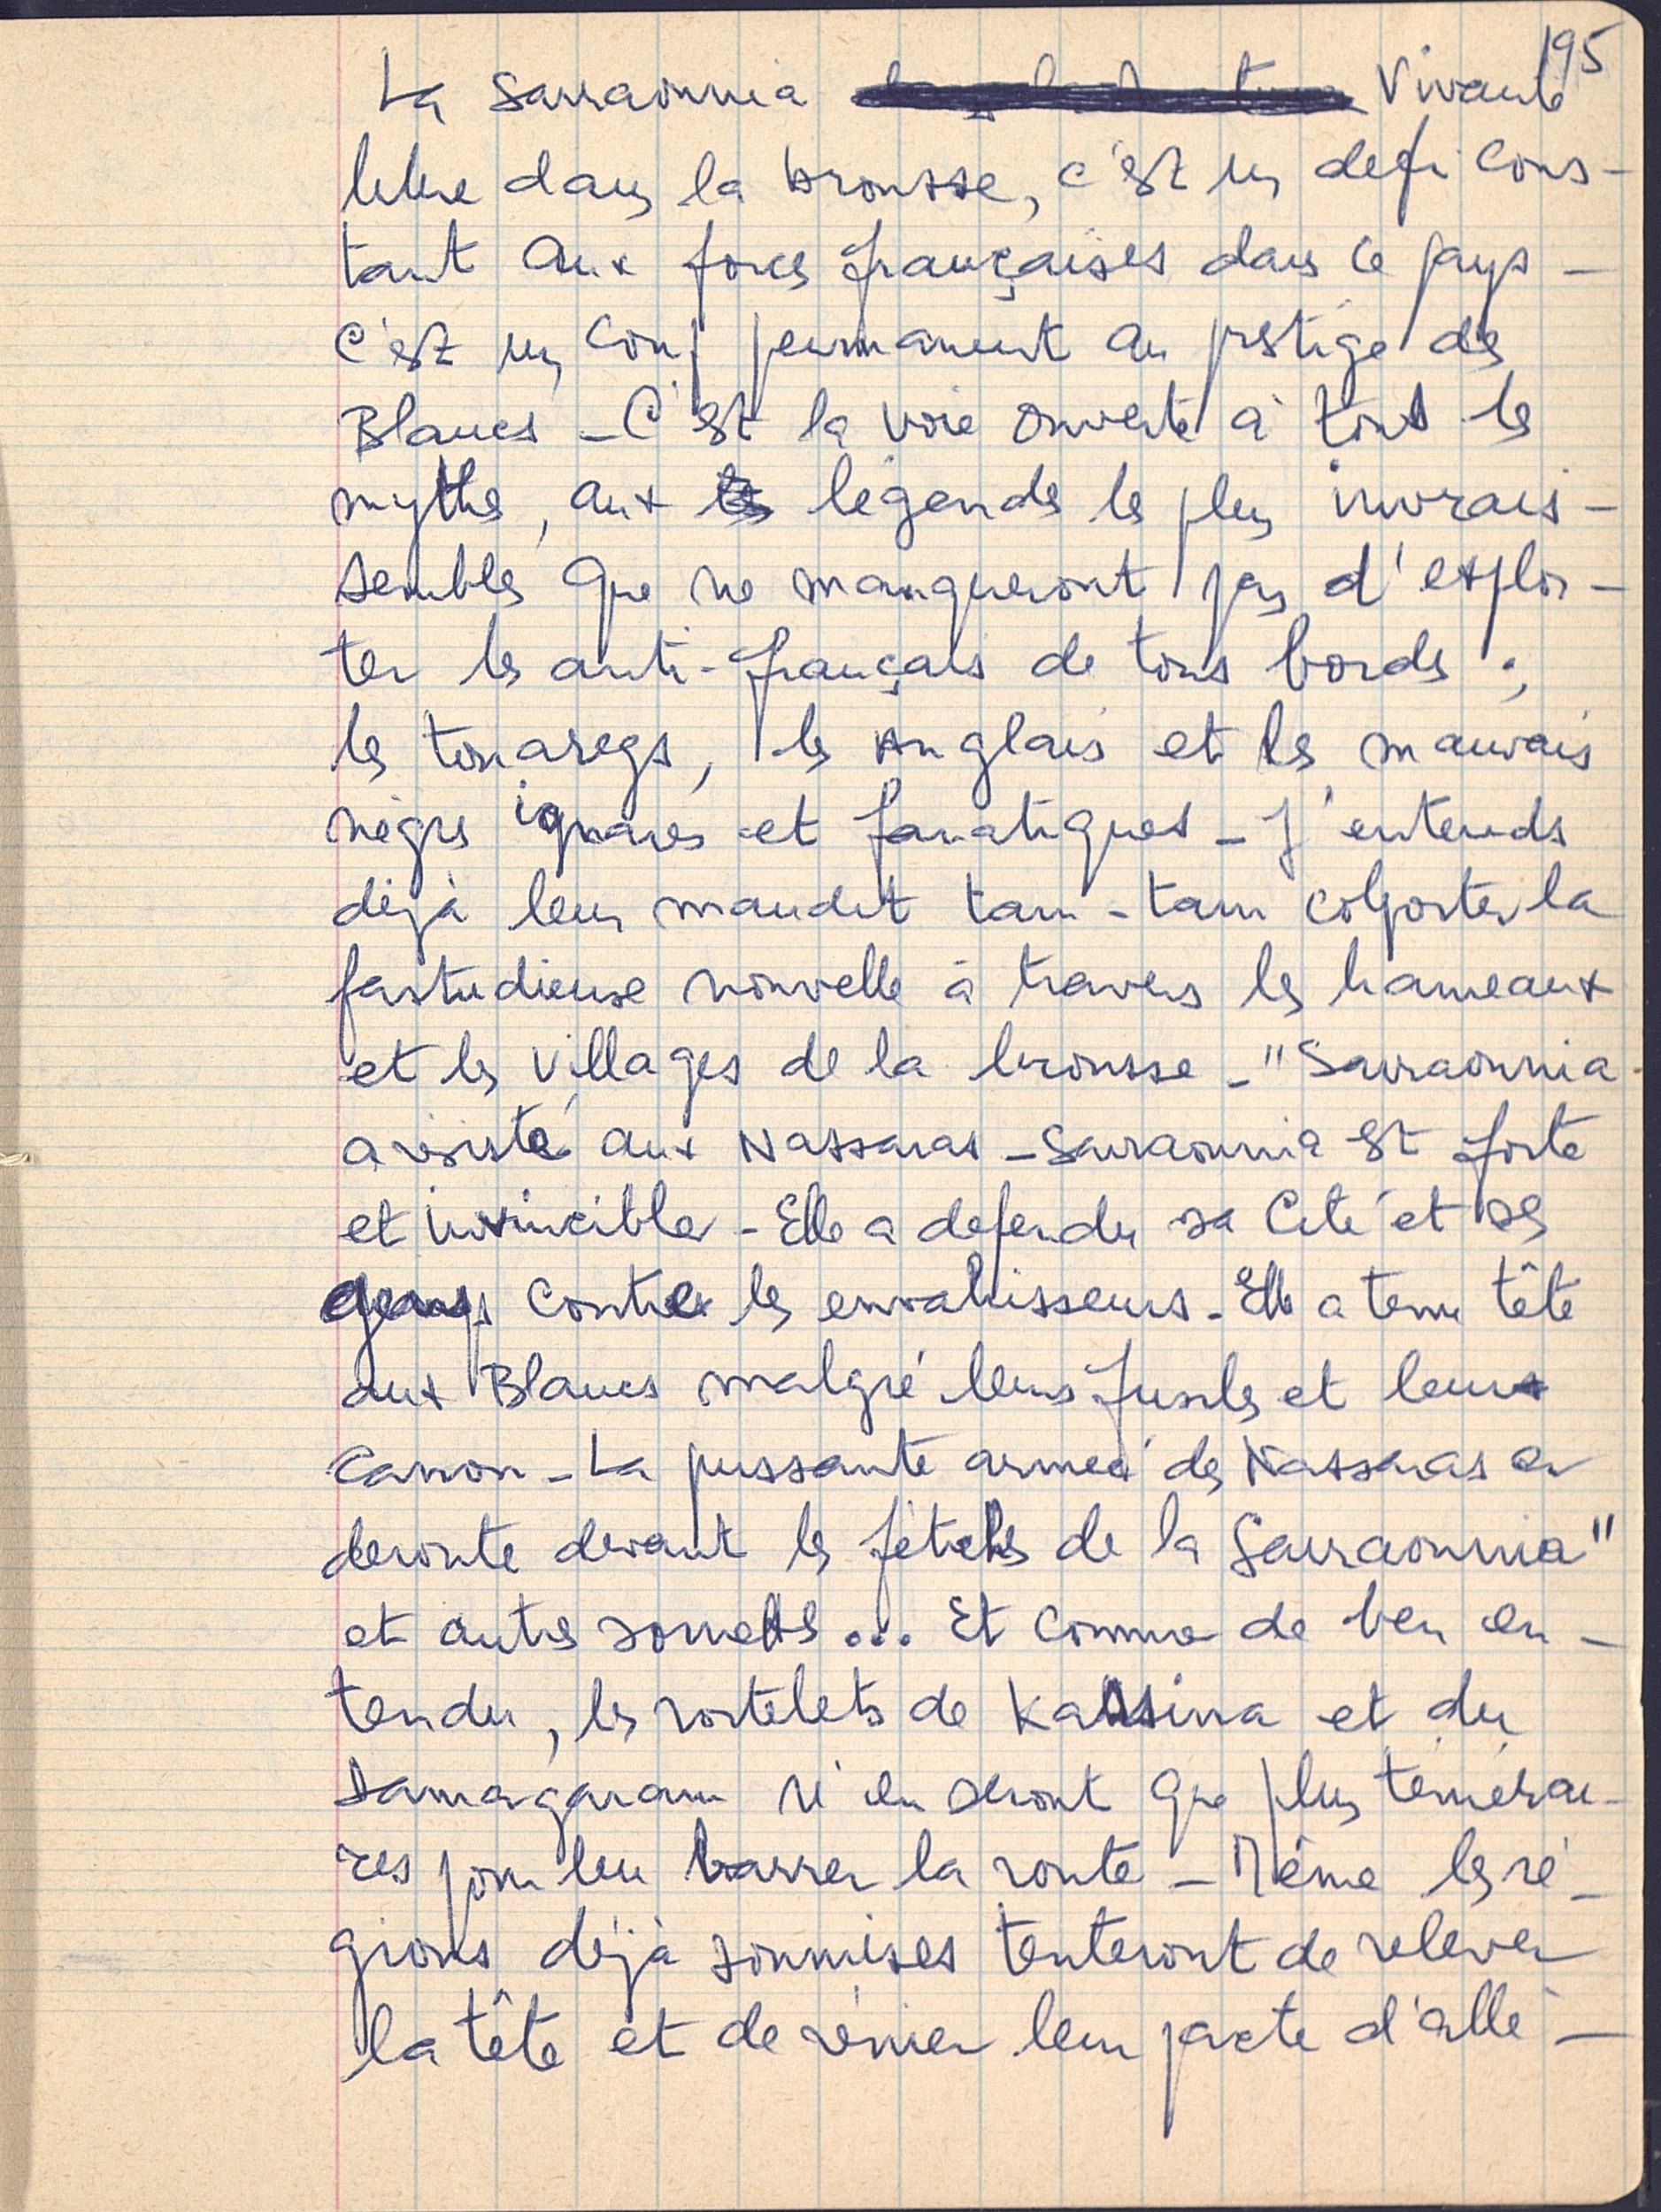 195
La Sarraounia Vivante
libre dans la brousse, c'est un defi cons-
tant aux forces françaises dans ce pays -
c'est un coup permanent au prestige des
Blancs - C'est la voie ouverte à tous les
mythes, aux légendes les plus invrais-
sembles que ne manqueront pas d'exploi-
ter les anti-français de tous bords :,
les touaregs, les Anglais et les mauvais
nègres ignares et fanatiques - J'entends
déjà leur maudit tam-tam colporter la
fastudieuse nouvelle à travers les hameaux
et les villages de la brousse - "Sarraounia
a résisté aux Nassaras - Sarraounia est forte
et invincible - Elle a defendu sa Cité et ses
gens contre les envahisseurs - Elle a tenu tête
aux Blancs malgré leurs fusils et leur
canon - La puissante armée des Nassaras en
deroute devant les fétiches de la Sarraounia"
et autres sornettes ... Et comme de bien en-
tendu, les roitelets de Katsina et du
Damagaram n'en seront que plus témérai-
res pour leur barrer la route - Même les ré-
gions déjà soumises tenteront de relever
la tête et de rénier leur pacte d'allé-